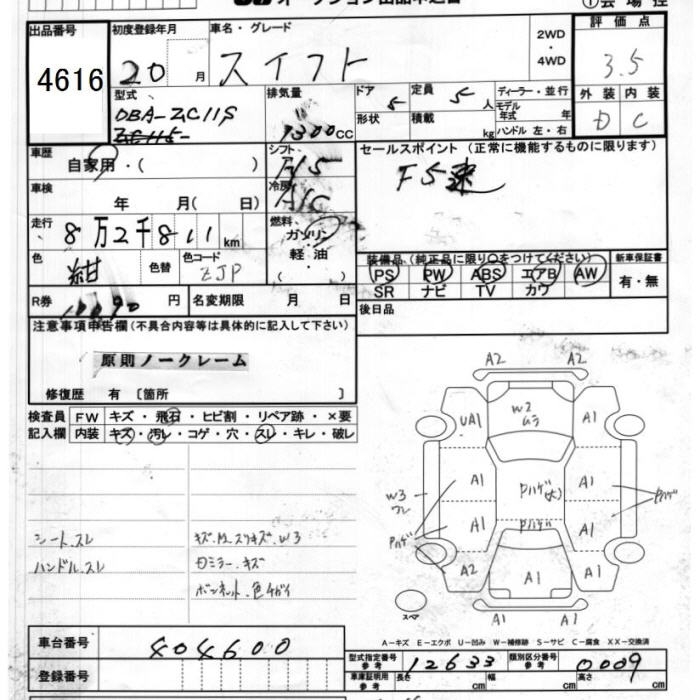 ①会場控
出品番号
4616
初度登録年月
20 月
車名・グレード
スイフト
2WD
・
4WD
評価点
3.5
外装 内装
D C
型式
DBA-ZC11S
ZC11S
排気量
1300 CC
ドア
5
定員
5 人
ディーラー・並行
モデル年式 年
形状
積載 kg
ハンドル 左・右
車歴
自家用・( )
シフト
F/5
セールスポイント(正常に機能するものに限ります)
F5速
車検
年 月( 日)
冷房
A/C
走行
8万2千811 km
燃料
ガソリン
・
軽油
( )
色
紺
色替
色コード
ZJP
装備品(純正品に限り○をつけてください)
新車保証書
PS PW ABS エアB AW
有・無
SR ナビ TV カワ
R券
10090 円
名変期限 月 日
後日品
注意事項申告欄(不具合内容等は具体的に記入して下さい)
原則ノークレーム
修復歴 有 [箇所 ]
検査員
記入欄
FW キズ・飛石・ヒビ割・リペア跡・×要
内装 キズ・汚レ・コゲ・穴・スレ・キレ・破レ
シート.スレ
ハンドル.スレ
ボンネット.色チガイ
A2 A2
UA1
W2
ムラ
A1
A1
Pハゲ(大)
A1
W3
ワレ
Pハゲ
A1
Pハゲ
A1
Pハゲ
A2
A1
A1
A1
スペア
A-キズ E-エクボ U-凹み W-補修跡 S-サビ C-腐食 XX-交換済
車台番号
404600
登録番号
型式指定番号
参考
12633
類別区分番号
参考
0009
車庫証明用
参考
長さ cm
幅 cm
高さ cm